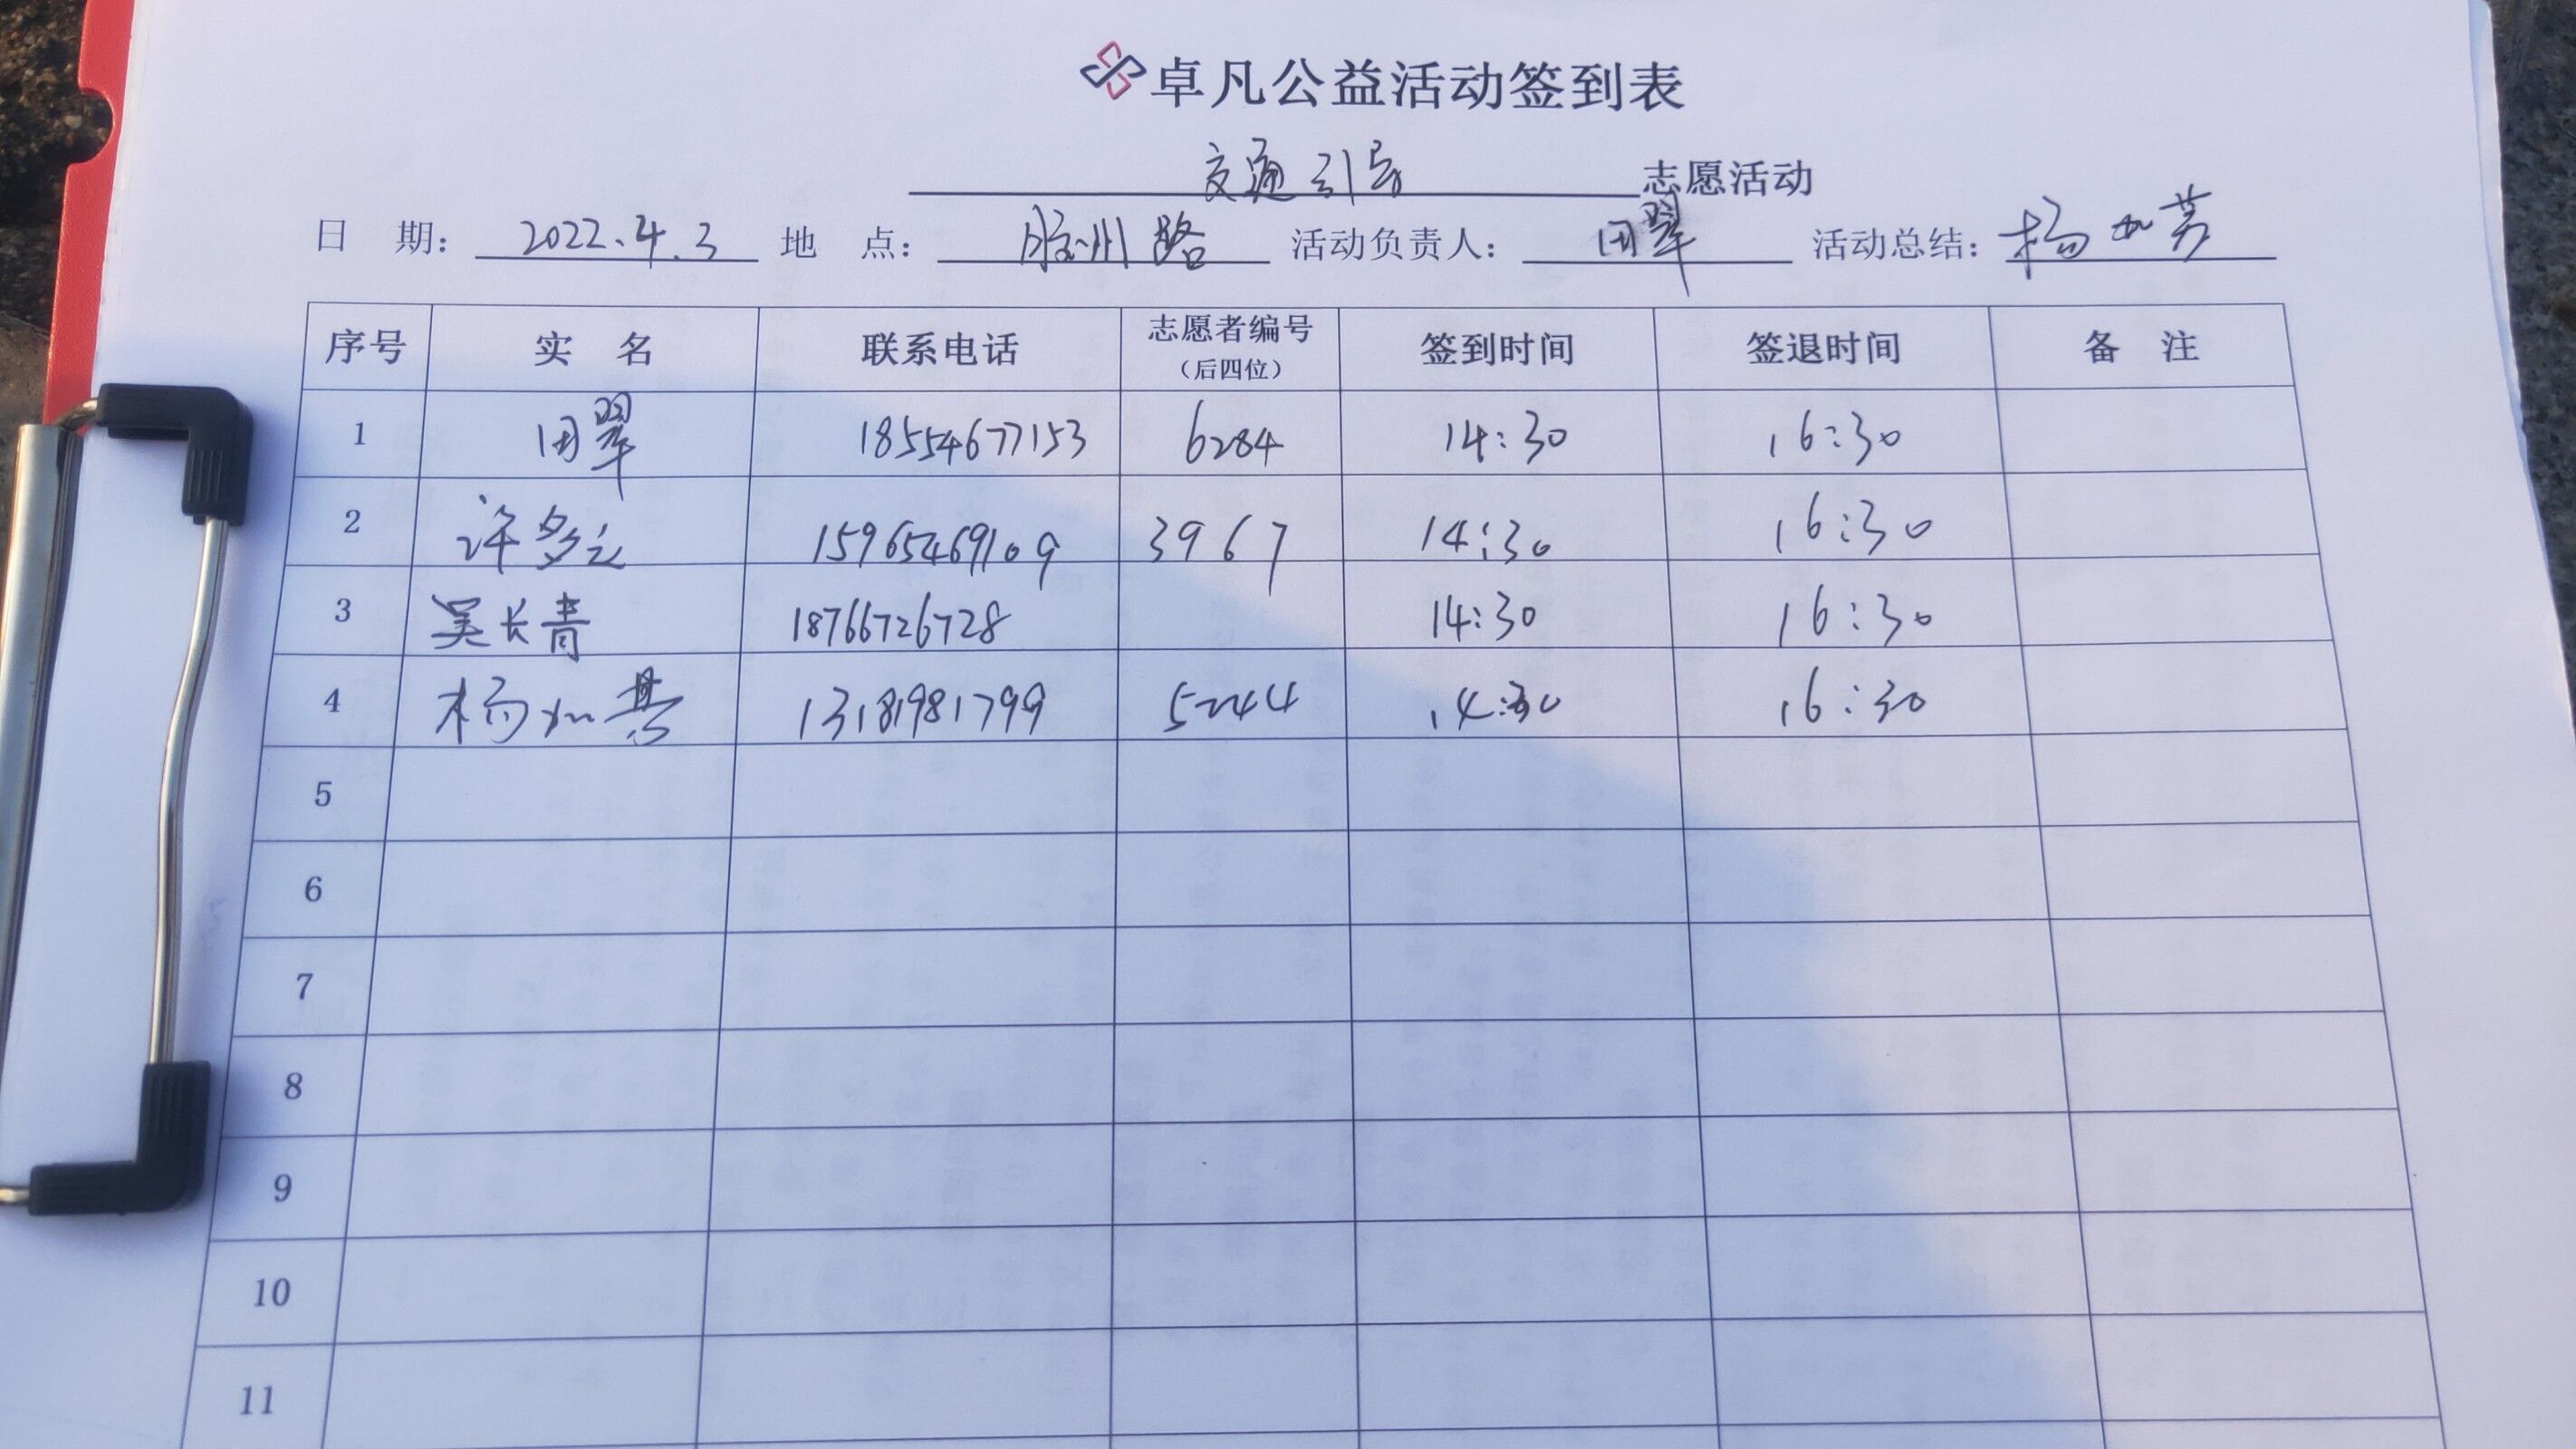 卓凡公益活动签到表
交通引导 志愿活动
日 期: 2022.4.3 地 点: 胶州路 活动负责人: 田翠 活动总结: 杨
序号 实 名 联系电话 志愿者编号 (后四位) 签到时间 签退时间 备 注
1 田翠 18554677153 6284 14:30 16:30
2 许多 15965469109 3967 14:30 16:30
3 吴长青 18766726728 14:30 16:30
4 杨如 13181981799 5244 14:30 16:30
5
6
7
8
9
10
11